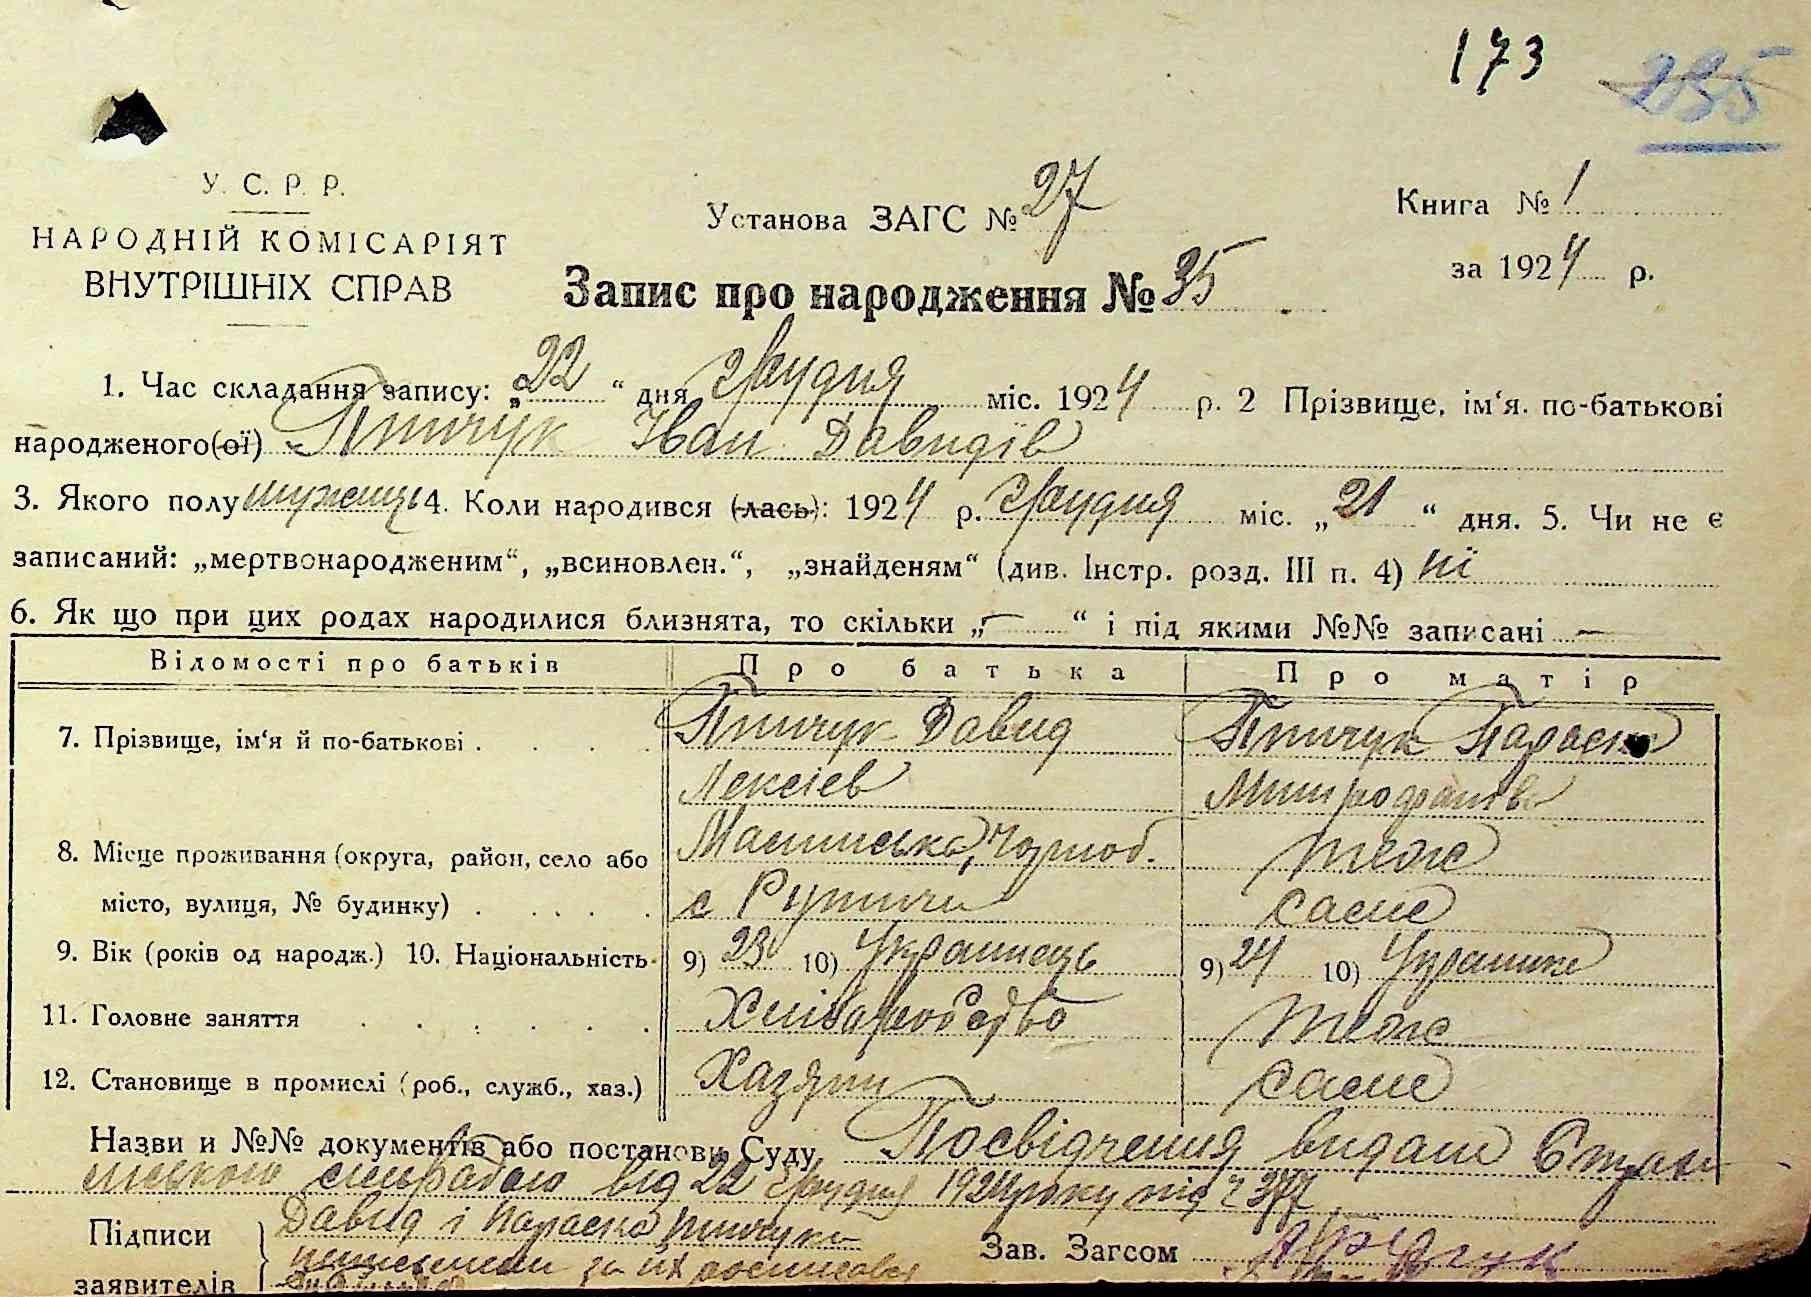 173 235
У. С. Р. Р.
НАРОДНІЙ КОМІСАРІЯТ
ВНУТРІШНІХ СПРАВ
Установа ЗАГС № 27
Книга № 1
за 1924 р.
Запис про народження № 35
1. Час складання запису: „22“ дня Грудня міс. 1924 р. 2 Прізвище, ім‘я. по-батькові
народженого(ої) Птичук Іван Давидів
3. Якого полу мужеш 4. Коли народився (лась): 1924 р. Грудня міс. „21“ дня. 5. Чи не є
записаний: „мертвонародженим“, „всиновлен.“, „знайденям“ (див. Інстр. розд. III п. 4) ні
6. Як що при цих родах народилися близнята, то скільки „—“ і під якими №№ записані —
Відомості про батьків Про батька Про матір
7. Прізвище, ім‘я й по-батькові . . . . Птичук Давид Птичук Параска
Лексіев
8. Місце проживання (округа, район, село або Чорноб. теж
місто, вулиця, № будинку) . . . . . с саме
9. Вік (років од народж.) 10. Національність 9) 23 10) Українець 9) 24 10)
11. Головне заняття . . . . . . Хліборобство теж
12. Становище в промислі (роб., служб., хаз.) Хазяин саме
Назви и №№ документів або постанови Суду Посвідчення видане
сільрадою від 22 Грудня 1924 року під ч 377
Підписи Давид і Параска Птичуки
заявителів за их
Зав. Загсом